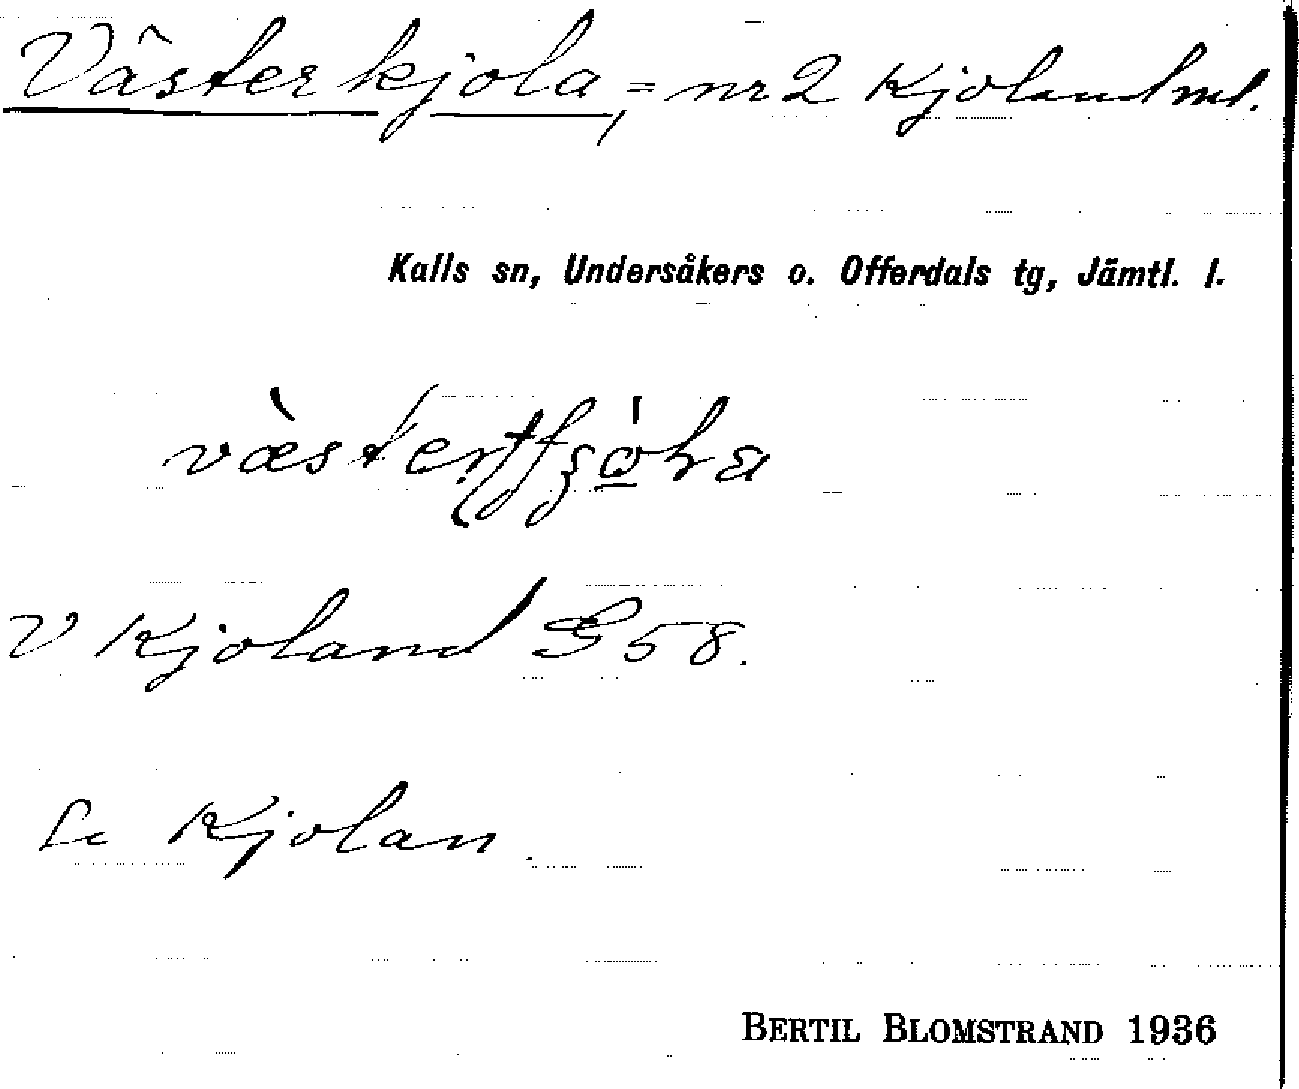 Västerkjola, = nr 2 Kjoland md.
Kalls sn, Undersåkers o. Offerdals tg, Jämtl. l.
V Kjoland G58.
Se Kjolan
BERTIL BLOMSTRAND 1936